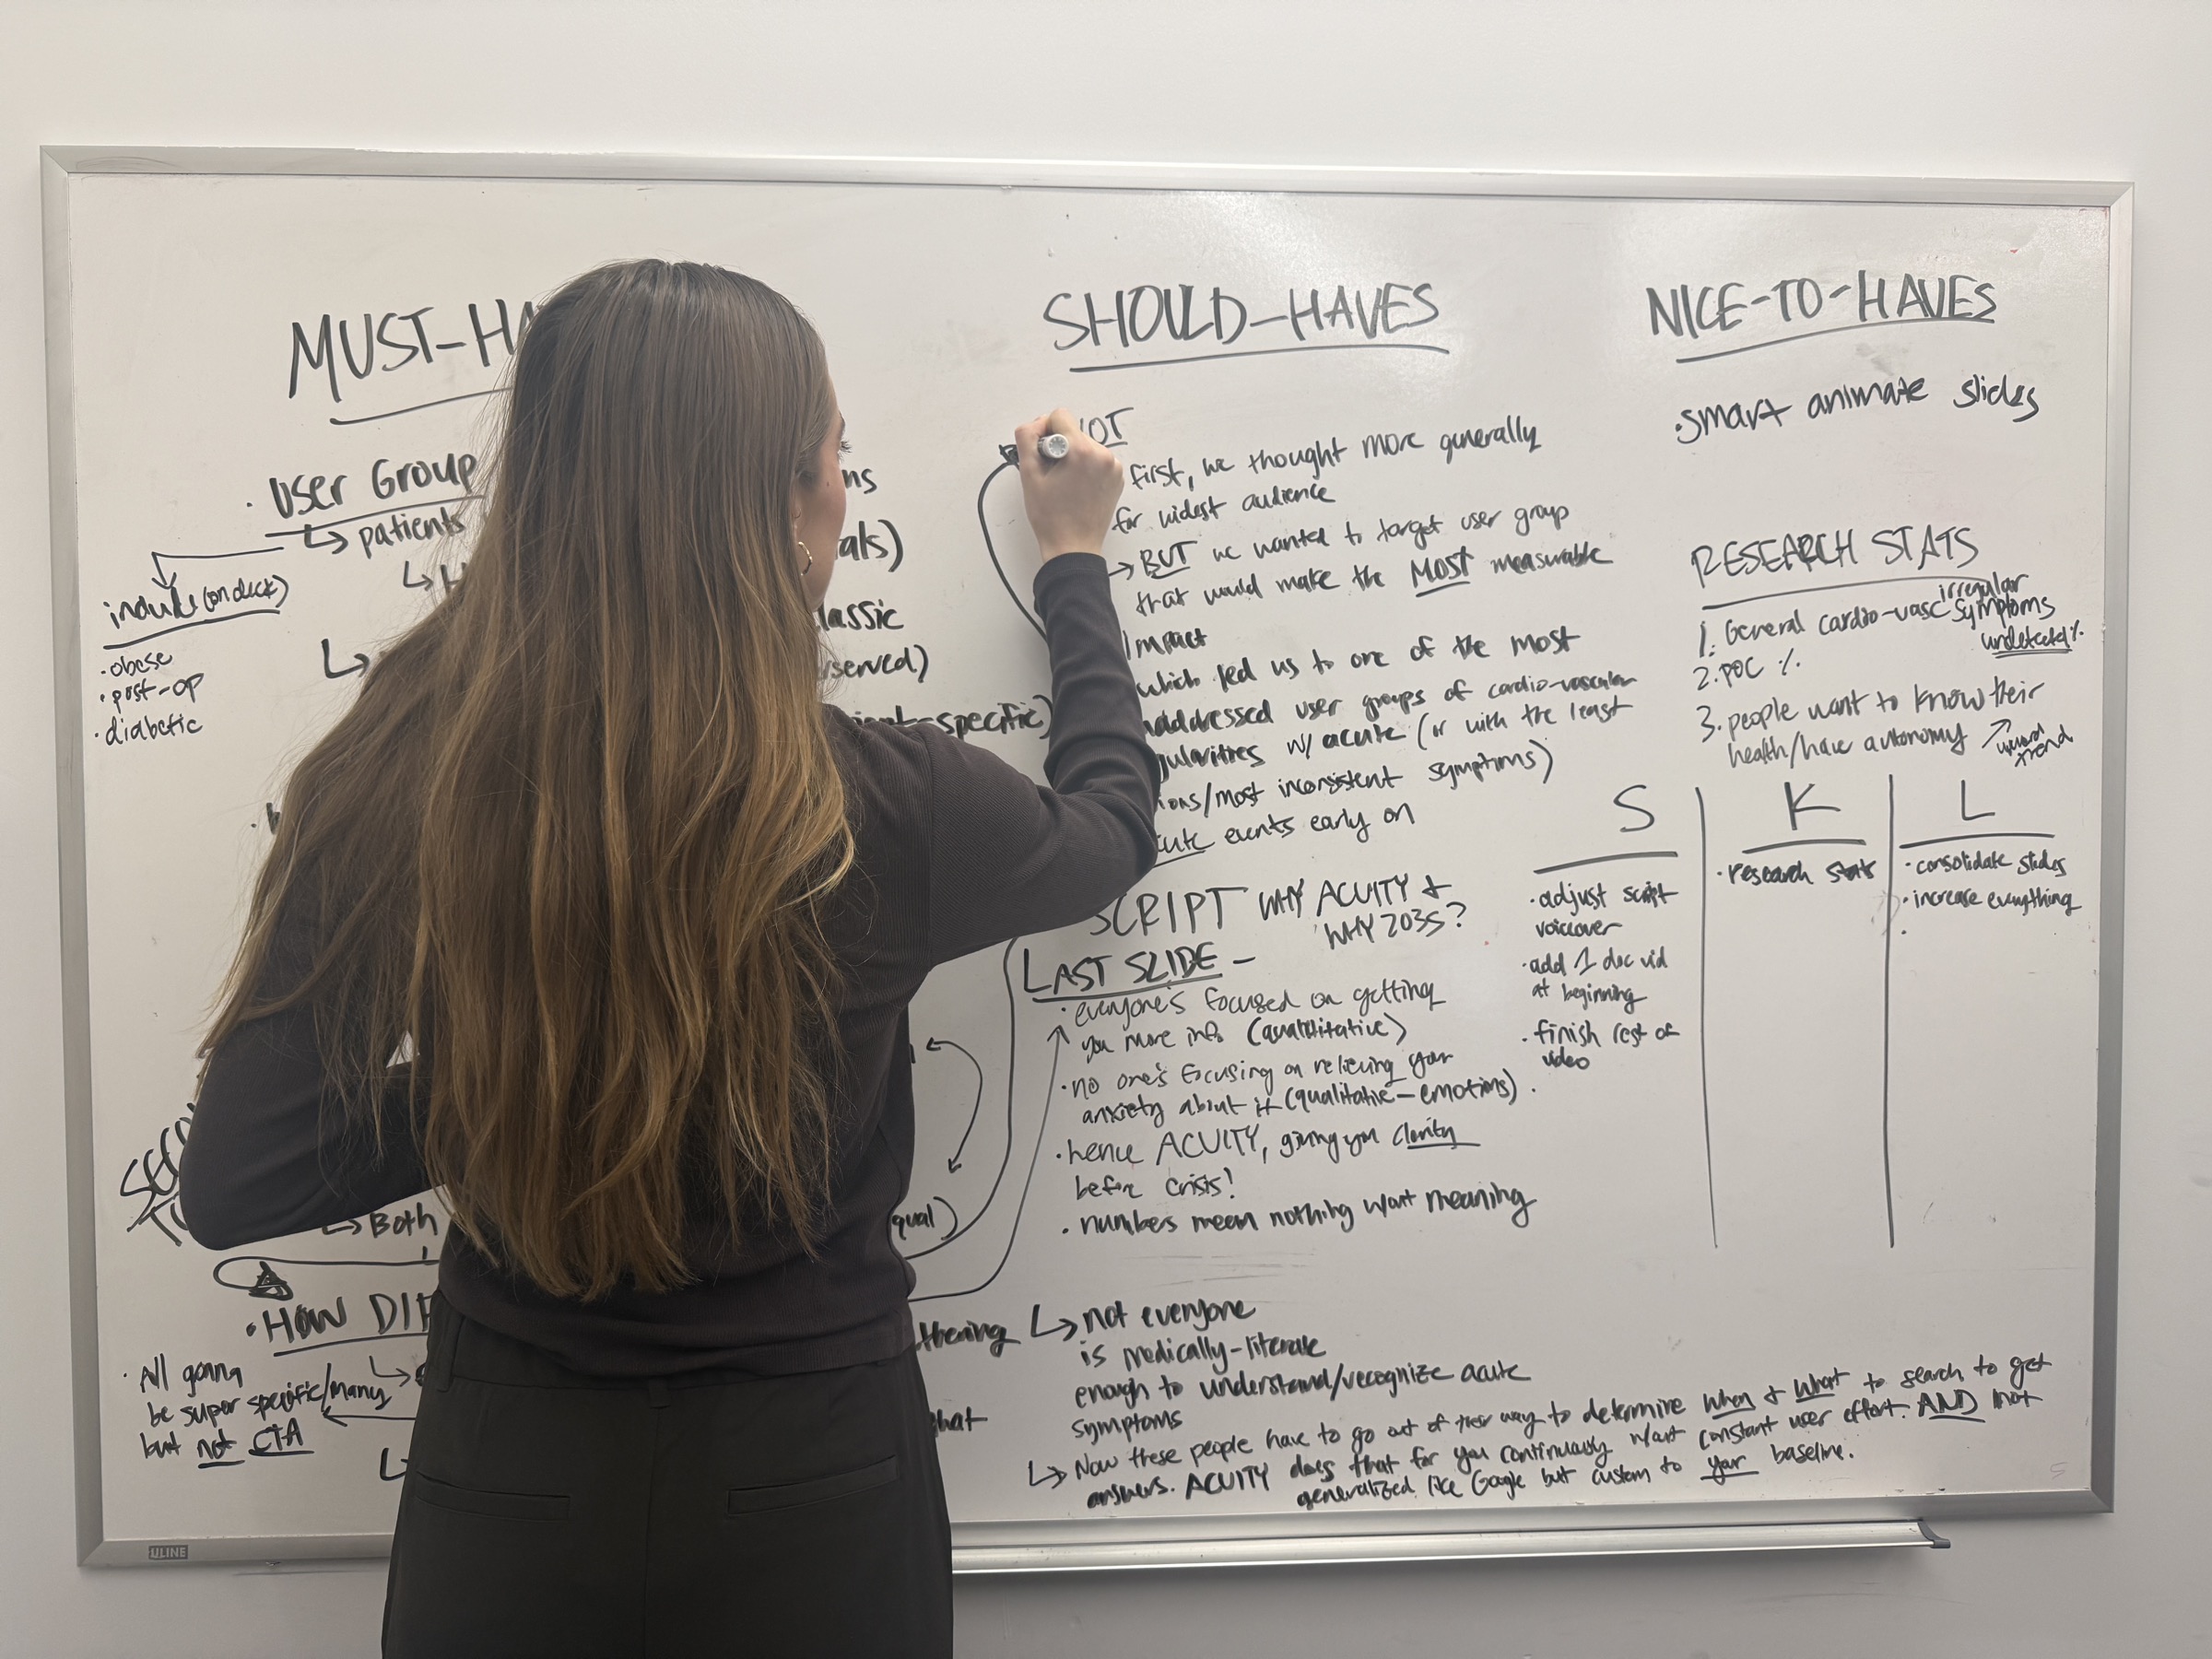 MUST-HA
· User Group
↳ patients
include (on deck)
· obese
· post-op
· diabetic
ns
als)
lassic
rserved)
-specific)
↳ Both
qual)
· HOW DIF
thering
· All gonna
be super specific/many
but not CTA
that
SHOULD-HAVES
OT
first, we thought more generally
for widest audience
→ BUT we wanted to target user group
that would make the MOST measurable
impact
which led us to one of the most
addressed user groups of cardio-vascular
gularities w/ acute (or with the least
ions/most inconsistent symptoms)
events early on
SCRIPT WHY ACUITY &
WHY 2035?
LAST SLIDE -
· everyone's focused on getting
you more info
· no one's focusing on relieving your
anxiety about it (qualitative - emotions).
· hence ACUITY, giving you clarity
before crisis!
· numbers mean nothing w/out meaning
↳ not everyone
is medically-literate
enough to understand/recognize acute
symptoms
↳ Now these people have to go out of their way to determine when & what to search to get
answers. ACUITY does that for you continuously w/out constant user effort. AND not
generalized like Google but custom to your baseline.
NICE-TO-HAVES
· smart animate slides
RESEARCH STATS
irregular
1. General cardio-vasc symptoms
undetected %
2. POC %
3. people want to know their
health/have autonomy
↗ upward
trend
S
· adjust script
voiceover
· add 1 doc vid
at beginning
· finish rest of
video
K
· research stats
L
· consolidate slides
· increase everything
ULINE